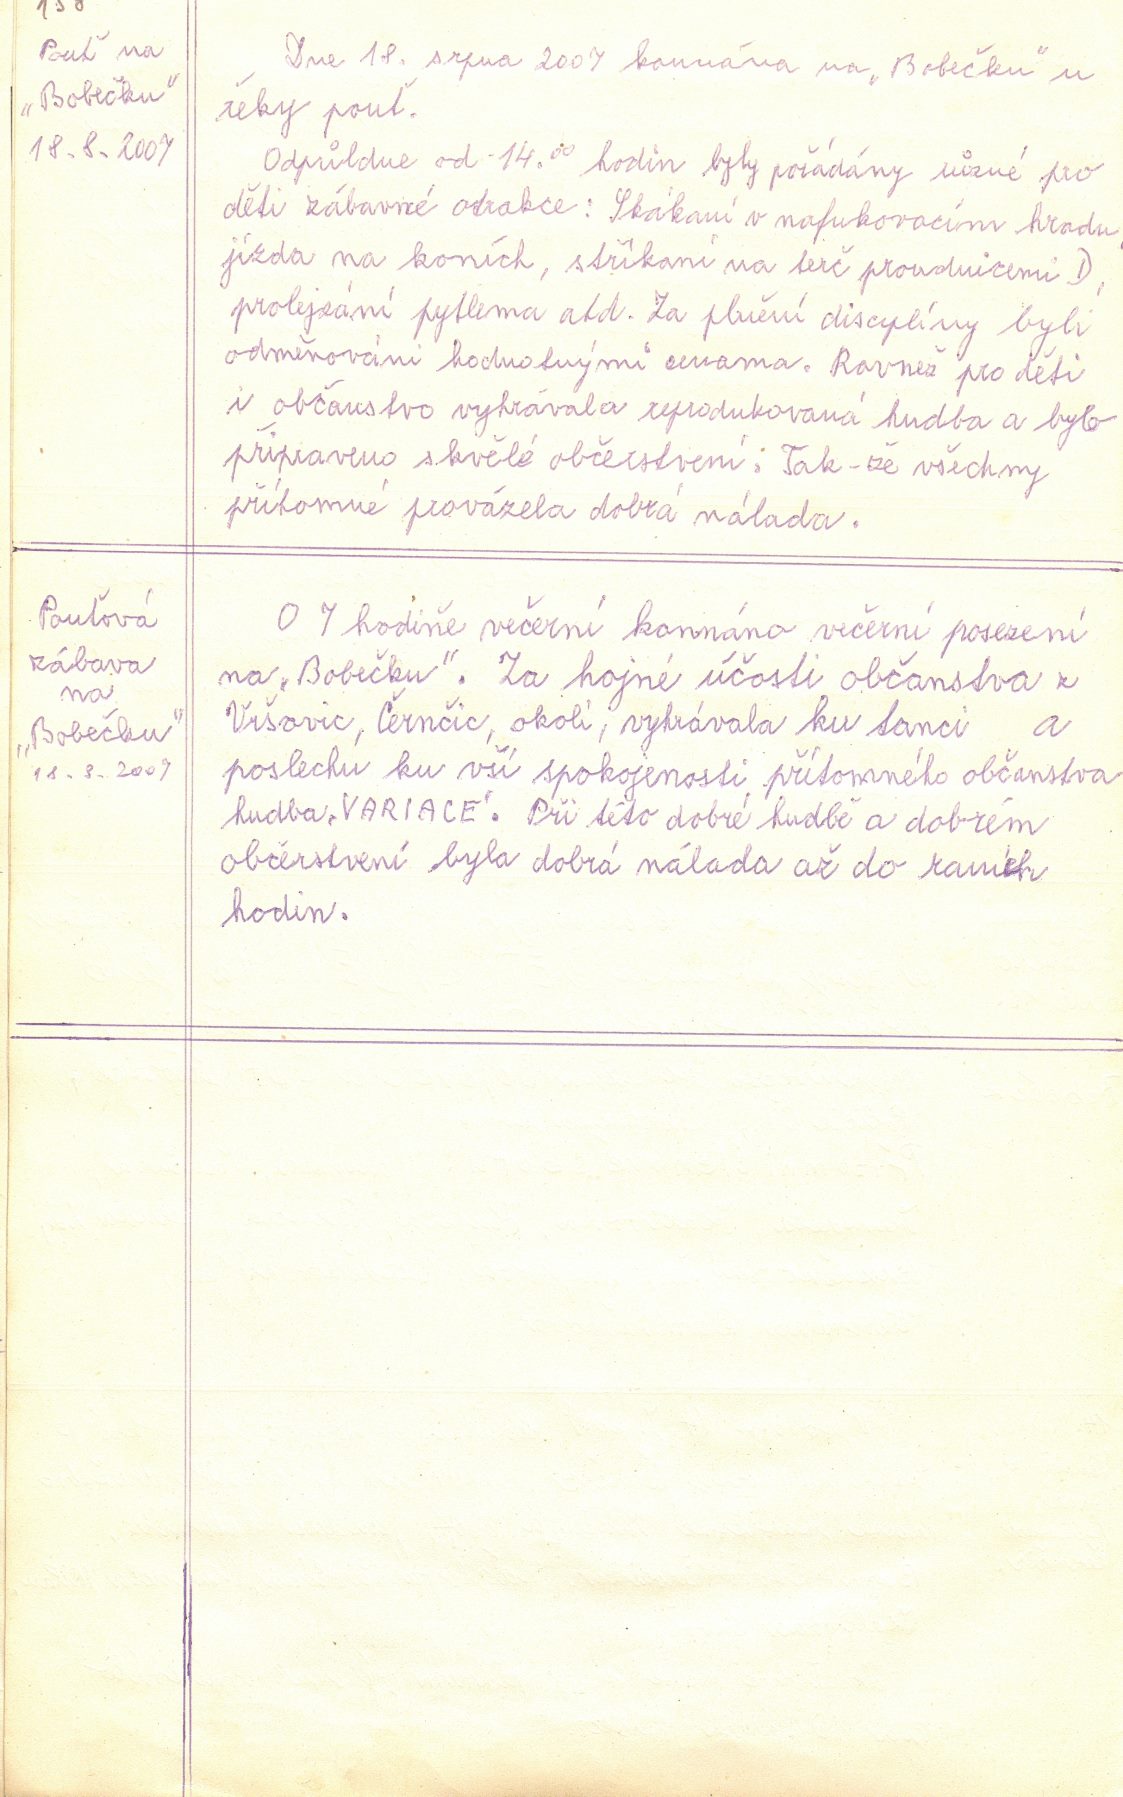 Pouť na
„Bobečku"
18.8.2007
Dne 18. srpna 2007 konnána na „Bobečku" u
řeky pouť.
Odpůldne od 14.00 hodin byly pořádány různé pro
děti zábavné atrakce: Skákaní v nafukovacím hradu,
jízda na koních, stříkaní na terč proudnicemi D,
prolejzání pytlema atd. Za plnění discyplíny byli
odměňováni hodnotnými cenama. Rovnež pro děti
i občanstvo vyhrávala reprodukovaná hudba a bylo
připraveno skvělé občerstvení. Tak-že všechny
přítomné provázela dobrá nálada.
Pouťová
zábava
na
„Bobečku"
18.8.2007
O 7 hodině večerní konnáno večerní posezení
na „Bobečku". Za hojné účosti občanstva z
Vršovic, Černčic, okolí, vyhrávala ku tanci a
poslechu ku vší spokojenosti přítomného občanstva
hudba „VARIACE". Při této dobré hudbě a dobrém
občerstvení byla dobrá nálada až do raních
hodin.